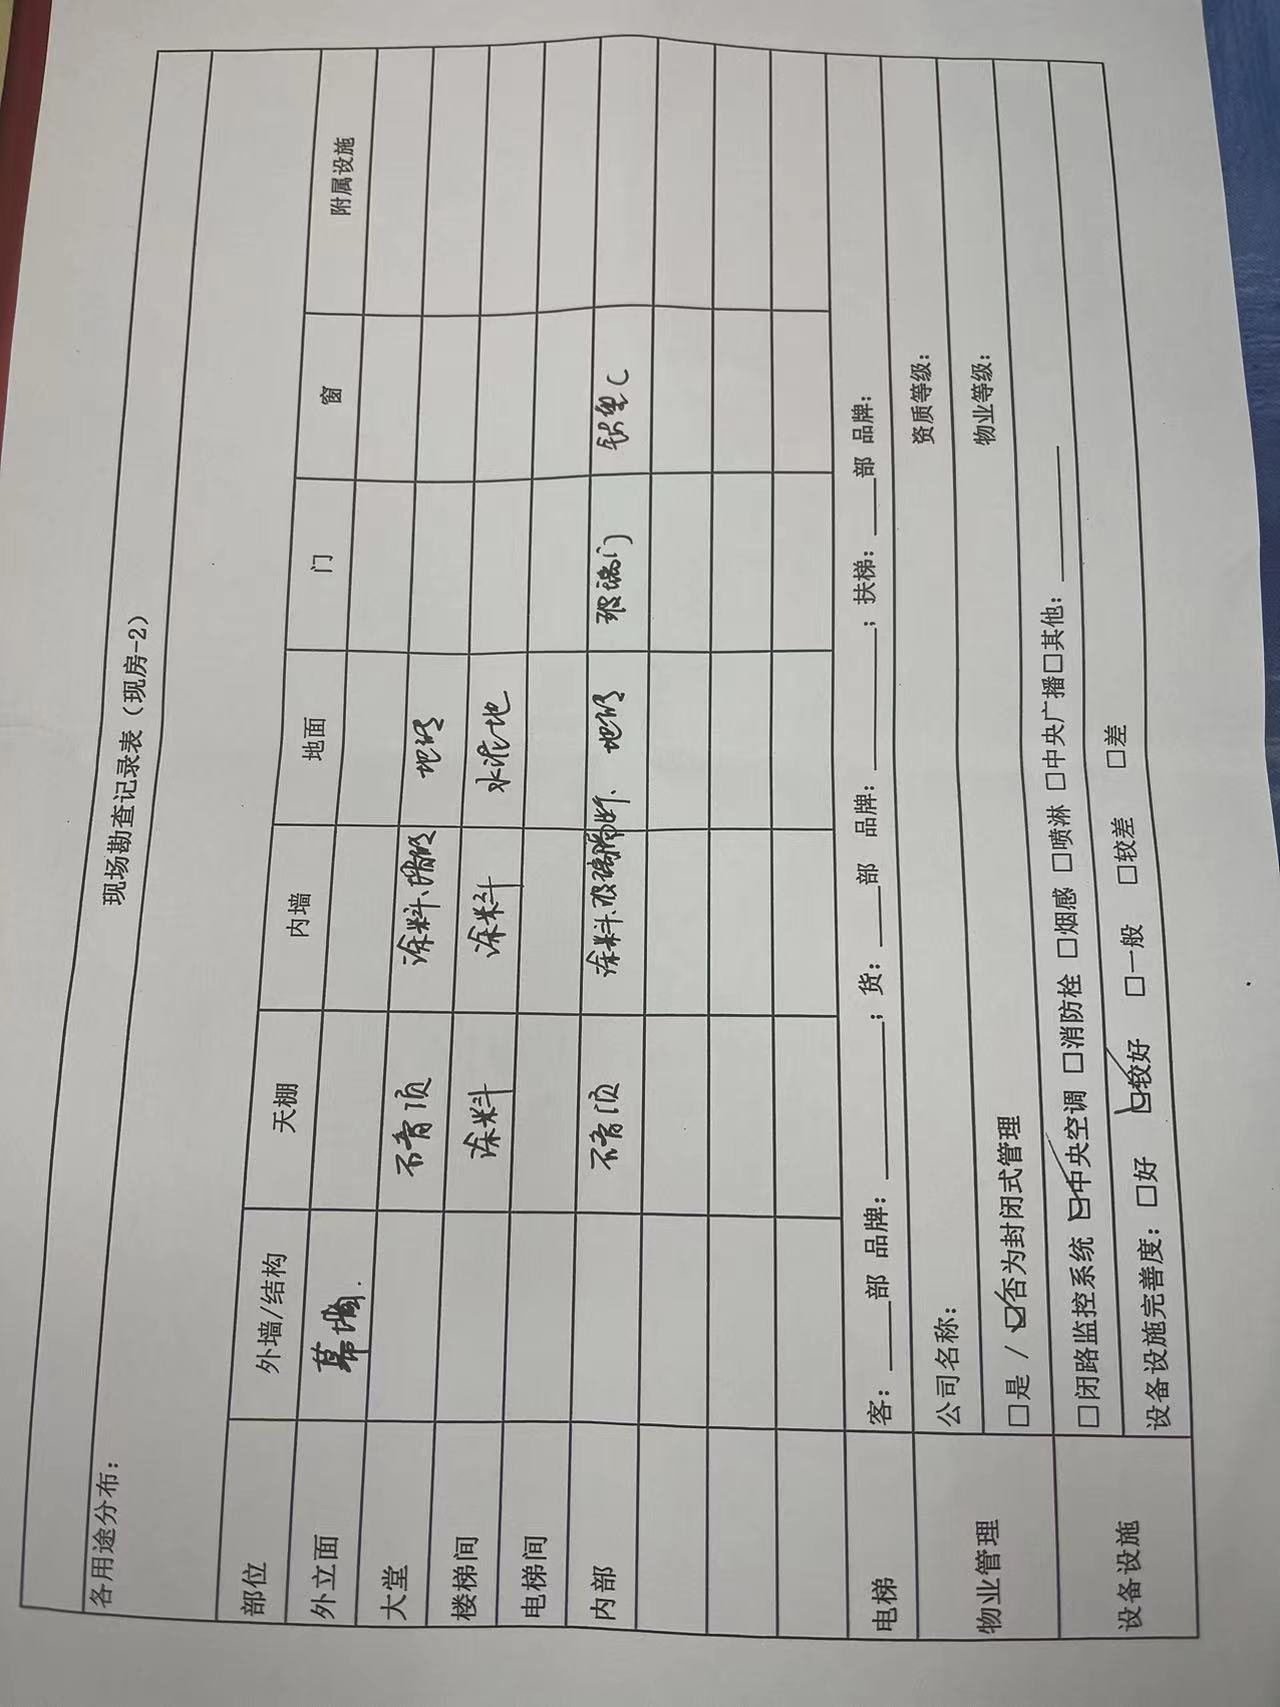 现场勘查记录表（现房-2）
各用途分布：
部位 外墙/结构 天棚 内墙 地面 门 窗 附属设施
外立面 幕墙.
大堂 石膏顶 涂料、墙砖 地砖
楼梯间 涂料 涂料 水泥地
电梯间
内部 石膏顶 涂料.玻璃隔断. 地砖 玻璃门
电梯 客：___部 品牌：______；货：___部 品牌：______；扶梯：___部 品牌：
物业管理 公司名称： 资质等级：
□是 / ☑否为封闭式管理 物业等级：
设备设施 □闭路监控系统 ☑中央空调 □消防栓 □烟感 □喷淋 □中央广播□其他：______
设备设施完善度：□好 ☑较好 □一般 □较差 □差